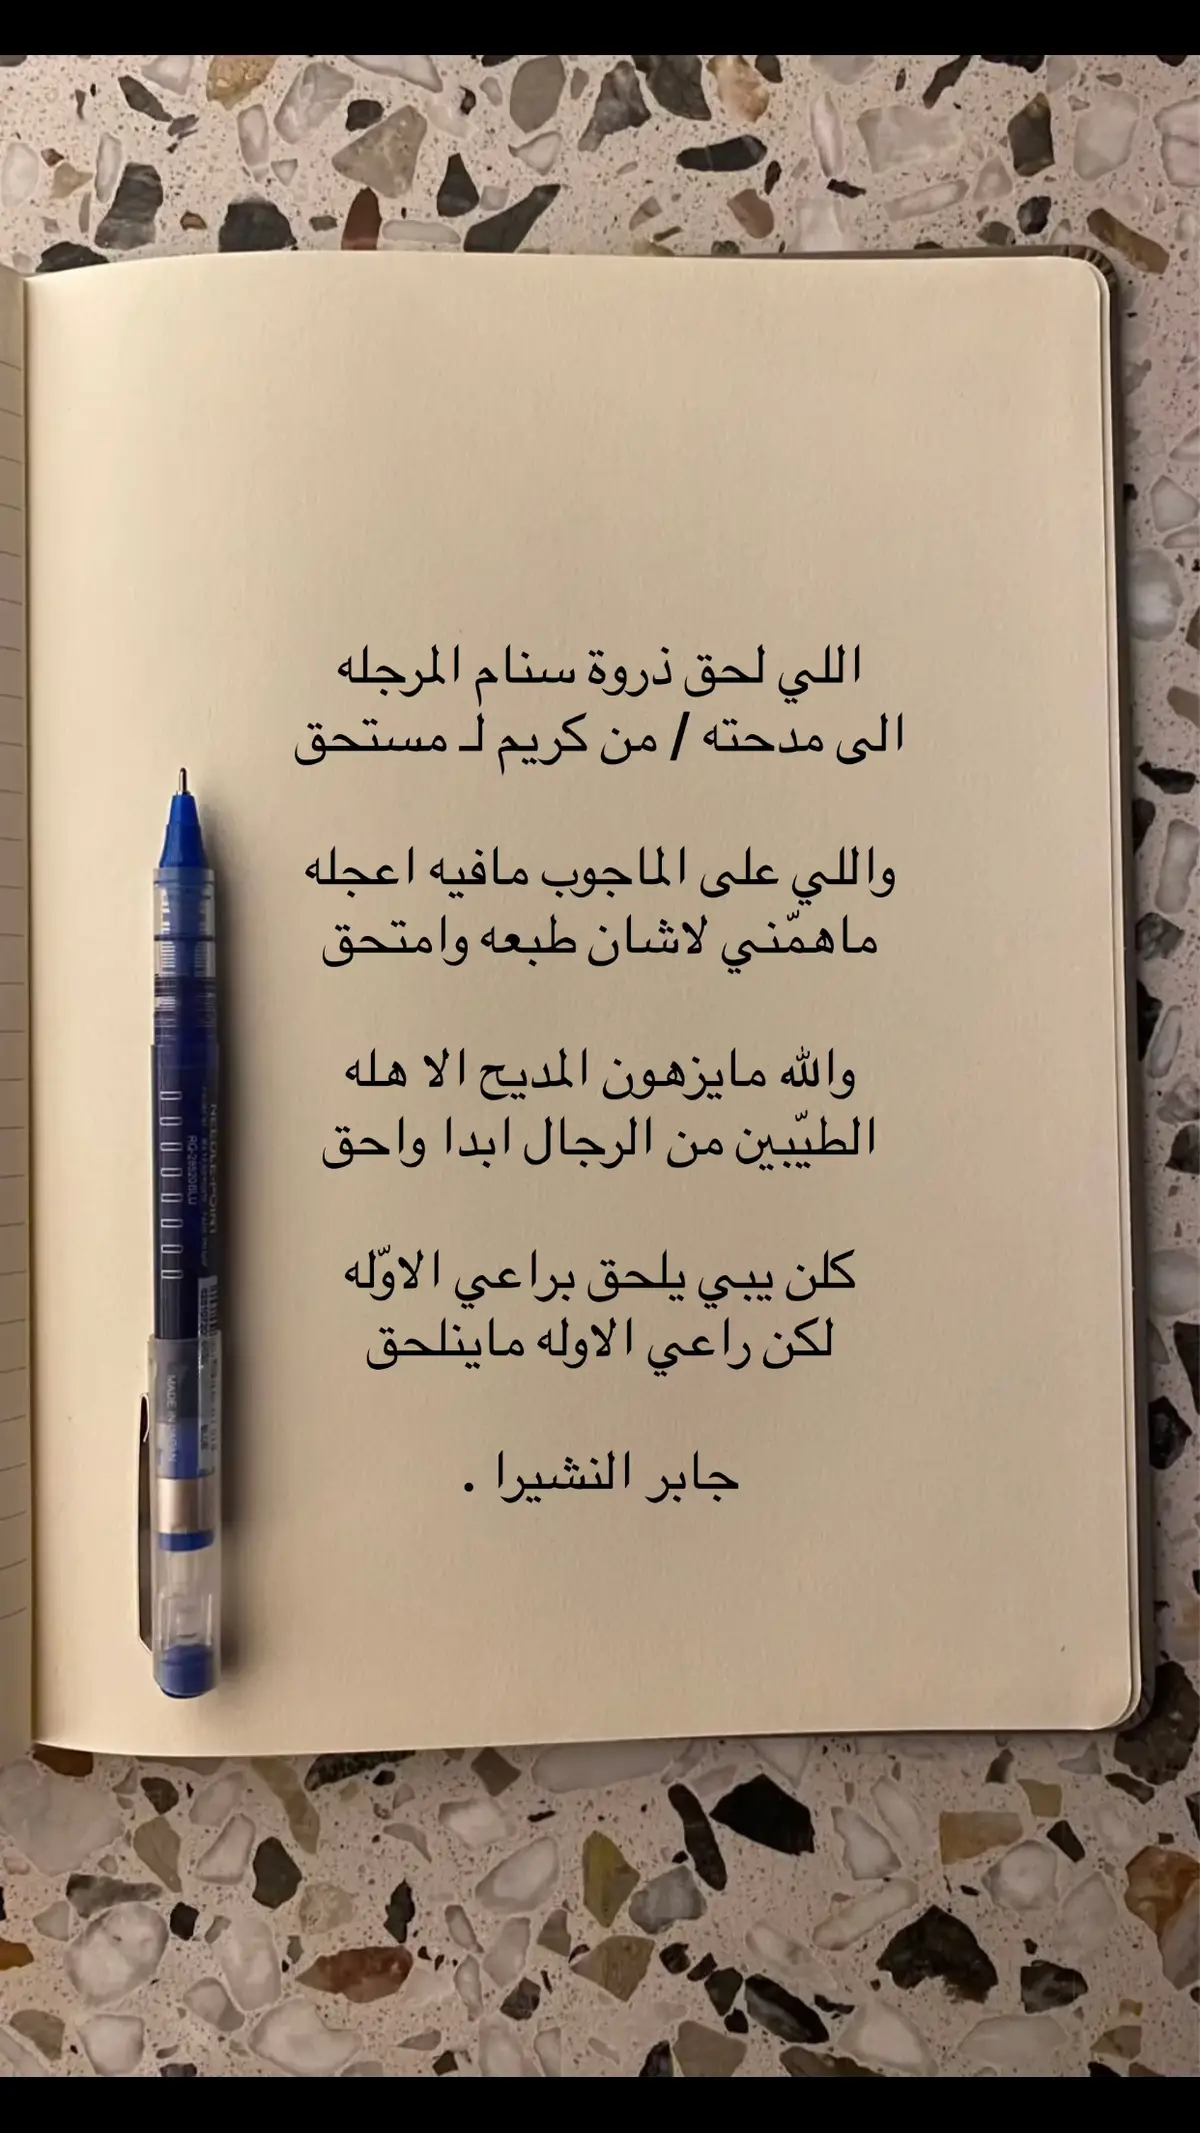 اللي لحق ذروة سنام المرجله
الى مدحته / من كريم لـ مستحق
واللي على الماجوب مافيه اعجله
ماهمّني لاشان طبعه وامتحق
والله مايزهون المديح الا هله
الطيّبين من الرجال ابدا واحق
كلن يبي يلحق براعي الاوّله
لكن راعي الاوله ماينلحق
جابر النشيرا .
NEEDLE-POINT
MADE IN JAPAN